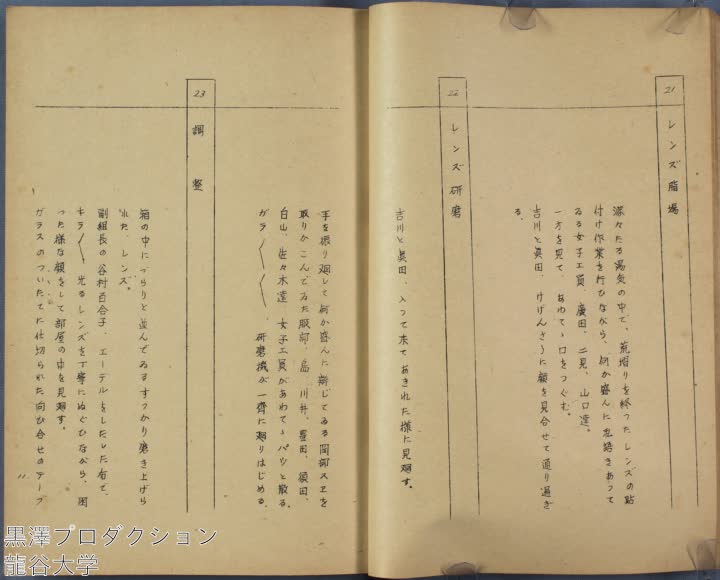 21
レンズ脂場
濛々たる湯気の中で、荒摺りを終つたレンズの點
付け作業を行ひながら、何か盛んに私語きあつて
ゐる女子工員、廣田、二見、山口達。
一方を見て、あわてゝ口をつぐむ。
吉川と眞田、けげんさうに顔を見合せて通り過ぎ
る。
22
レンズ研磨
吉川と眞田、入つて来てあきれた様に見廻す。
手を振り廻して何か盛んに論じてゐる岡部スヱを
取りかこんでゐた服部、島、川井、豊田、領田、
白山、佐々木達、女子工員があわてゝパツと散る。
ガラ〳〵〳〵、研磨機が一齊に廻りはじめる。
23
調整
箱の中にづらりと並んでゐるすつかり磨き上げら
れた、レンズ。
副組長の谷村百合子、エーテルをしたした布で、
キラ〳〵光るレンズを丁寧にぬぐひながら、困
つた様な顔をして部屋の中を見廻す。
ガラスのついたてに仕切られた向ひ合せのテーブ
黒澤プロダクション
龍谷大学